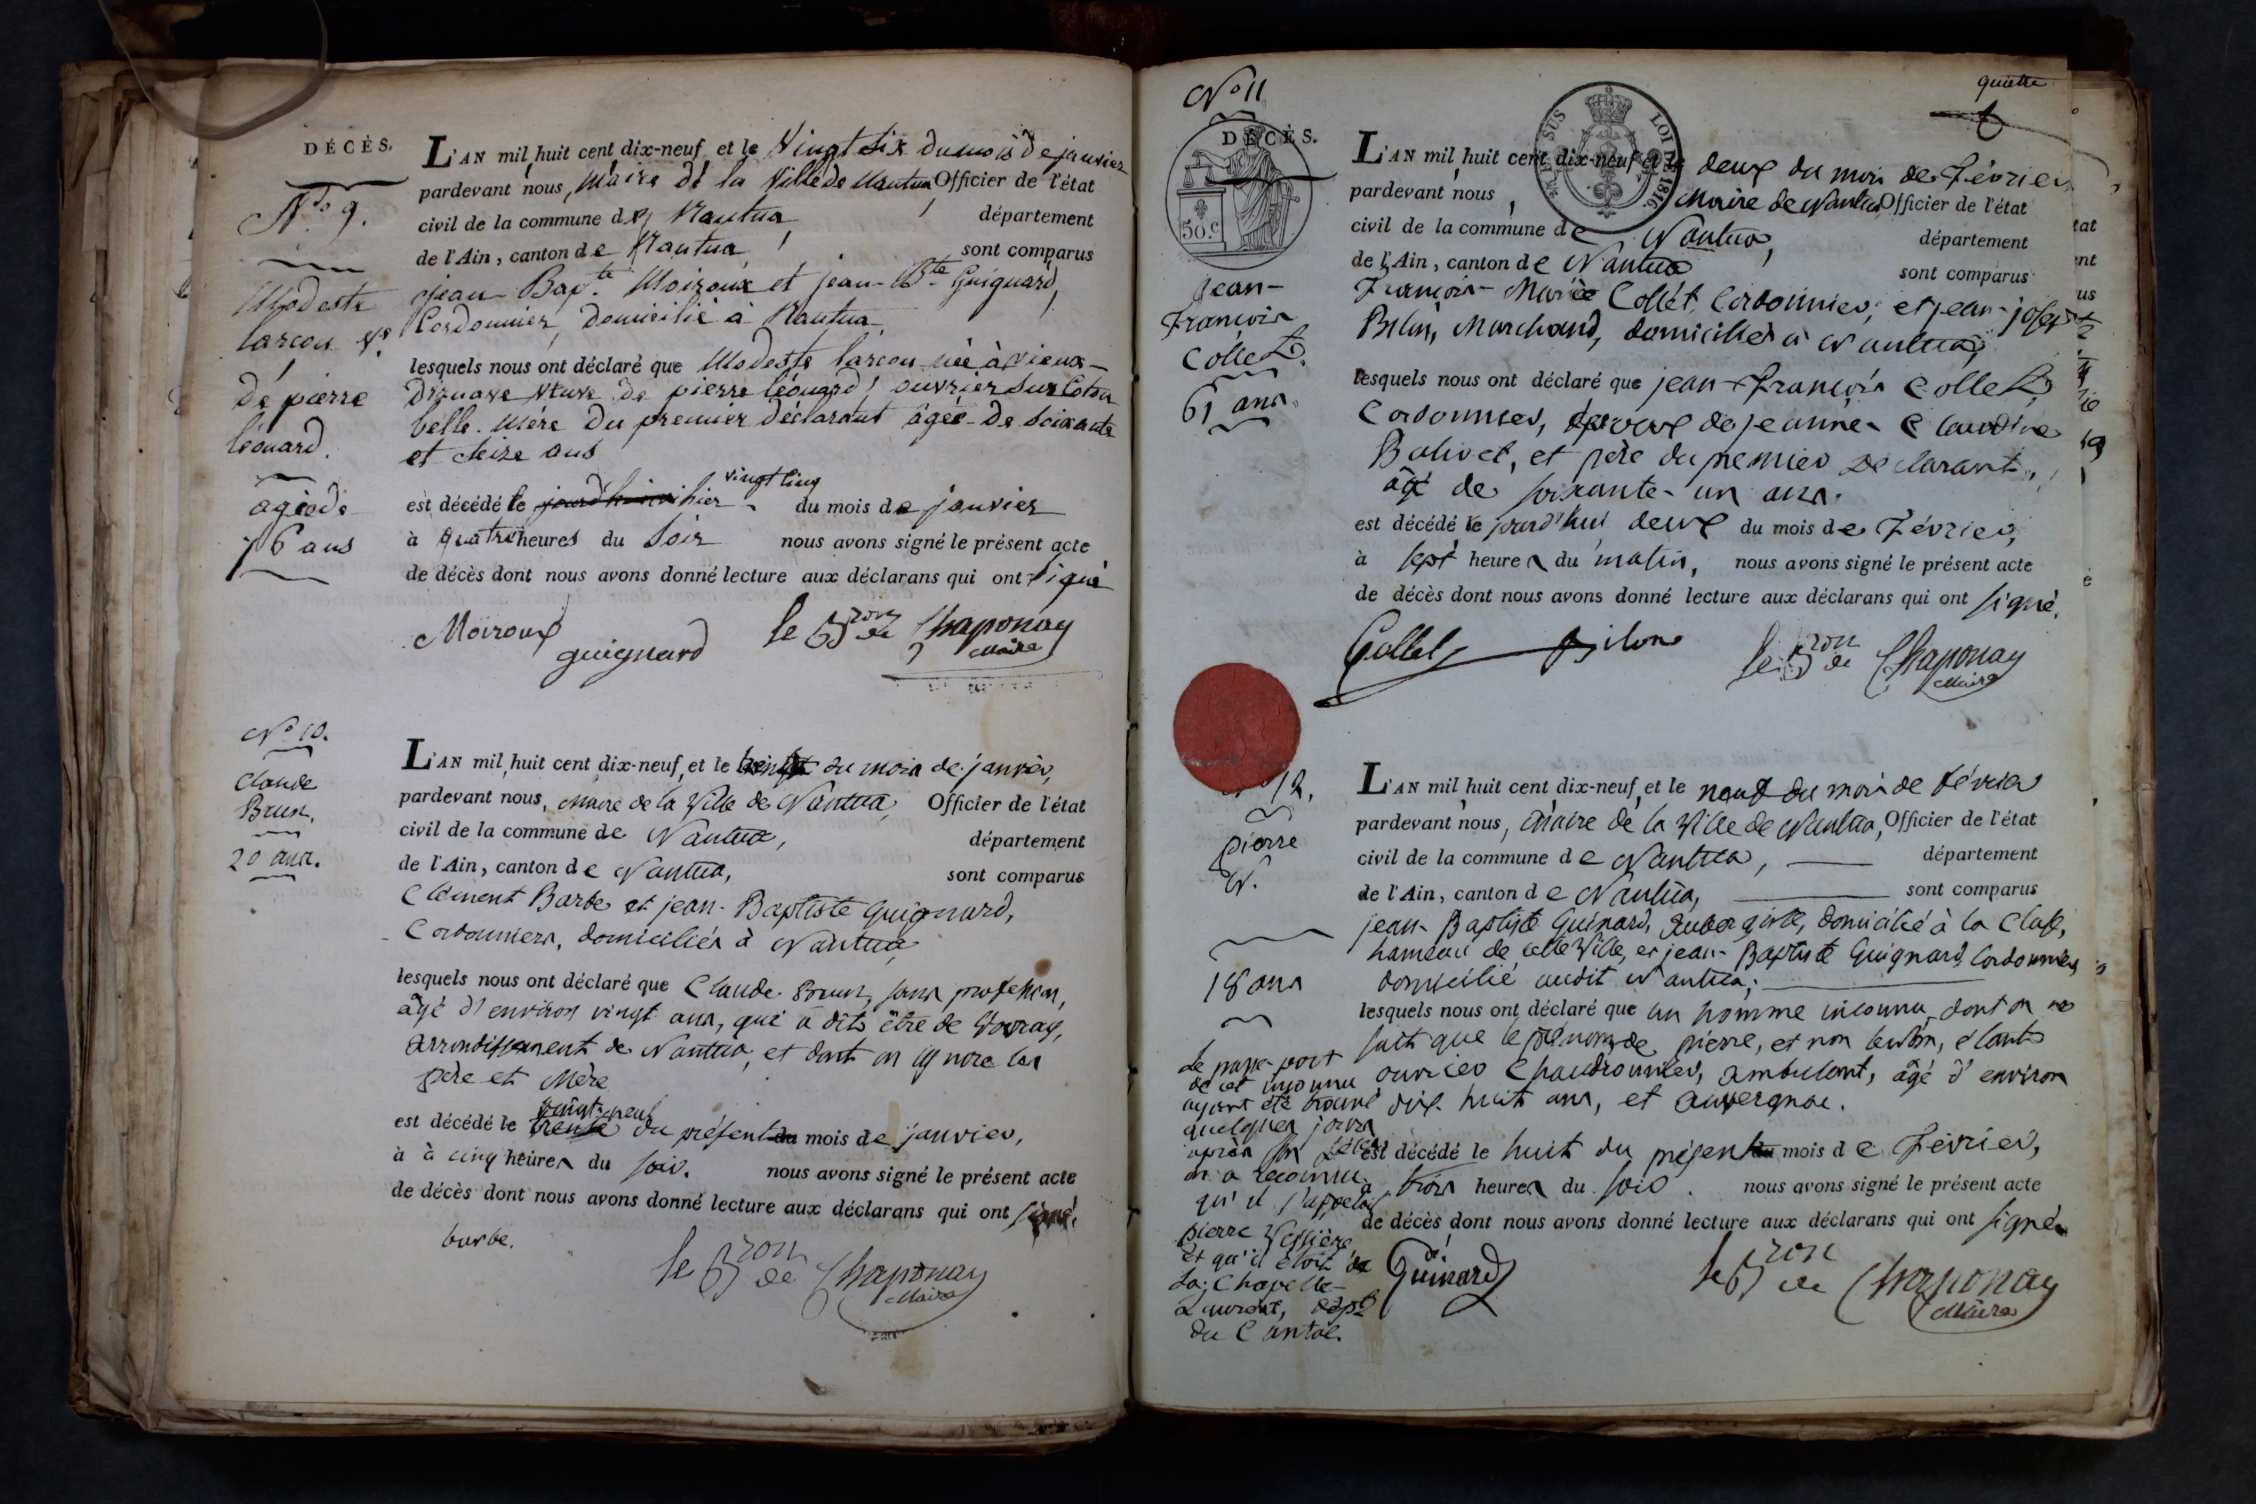 DÉCÈS.
N.º 9.
Modeste
larcon v.e
de pierre
léouard.
agée de
76 ans
L'AN mil huit cent dix-neuf et le Vingt six du mois de janvier
pardevant nous, Maire de la Ville de Nantua, Officier de l'état
civil de la commune de Nantua, département
de l'Ain, canton de Nantua, sont comparus
jean-Bap.te Moiroux et jean-B.te Guignard,
Cordonnier, domicilié à Nantua,
lesquels nous ont déclaré que Modeste larcon née à vieux-
veuve de pierre léouard, ouvrier sur Coton
belle-mère du premier déclarant agée de soixante
et seize ans
vingt cinq
est décédé le jourd'hui hier du mois de janvier
à quatre heures du soir nous avons signé le présent acte
de décès dont nous avons donné lecture aux déclarans qui ont signé
Moiroux
guignard
le B.ron de Chaponay
Maire
N.º 10.
Claude
Brun.
20 ans.
L'AN mil huit cent dix-neuf, et le trente du mois de janvier,
pardevant nous, Maire de la Ville de Nantua, Officier de l'état
civil de la commune de Nantua, département
de l'Ain, canton de Nantua, sont comparus
Clément Barbe et jean-Baptiste Guignard,
Cordonniers, domiciliés à Nantua,
lesquels nous ont déclaré que Claude Brun, sans profession,
âgé d'environ vingt ans, qui a dit être de
arrondissement de Nantua, et dont on ignore les
père et Mère
vingt-neuf
est décédé le trente du présent du mois de janvier,
à à cinq heures du soir. nous avons signé le présent acte
de décès dont nous avons donné lecture aux déclarans qui ont signé.
barbe.
le B.ron de Chaponay
Maire
N.º 11
DÉCÈS.
50.c
LOI DE 1816
quatre
Jean-
François
Collet.
61 ans.
L'AN mil huit cent dix-neuf et le deux du mois de Février
pardevant nous, Maire de Nantua, Officier de l'état
civil de la commune de Nantua, département
de l'Ain, canton de Nantua sont comparus
François-Marie Collet, Cordonnier, et jean-joseph
Bilon, Marchand, domiciliés à Nantua,
lesquels nous ont déclaré que jean-François Collet,
Cordonnier, époux de jeanne-Claudine
Bolivet, et père du premier Déclarant,
âgé de soixante-un ans.
est décédé le jourd'hui deux du mois de Février,
à sept heures du matin, nous avons signé le présent acte
de décès dont nous avons donné lecture aux déclarans qui ont signé.
Collet Bilon
le B.ron de Chaponay
Maire
12.
pierre
N.
18 ans
L'AN mil huit cent dix-neuf, et le neuf du mois de février
pardevant nous, Maire de la Ville de Nantua, Officier de l'état
civil de la commune de Nantua, département
de l'Ain, canton de Nantua, sont comparus
jean-Baptiste Guinard, Aubergiste, domicilié à la Cluse,
hameau de cette Ville, et jean-Baptiste Guignard, Cordonnier,
domicilié audit Nantua,
lesquels nous ont déclaré que un homme inconnu, dont on ne
sait que le prénom de pierre, et non le nom, étant
ouvrier Chaudronnier, ambulant, âgé d'environ
dix-huit ans, et auvergnac.
est décédé le huit du présent du mois de Février,
à trois heures du soir. nous avons signé le présent acte
de décès dont nous avons donné lecture aux déclarans qui ont signé
Guinard
le B.ron de Chaponay
Maire
Le passe-port
de cet inconnu
ayant été trouvé
quelques jours
après son décès
on a reconnu
qu'il s'appelait
pierre Vessière
Et qu'il étoit de
La Chapelle-
Laurent, dép.t
du Cantal.